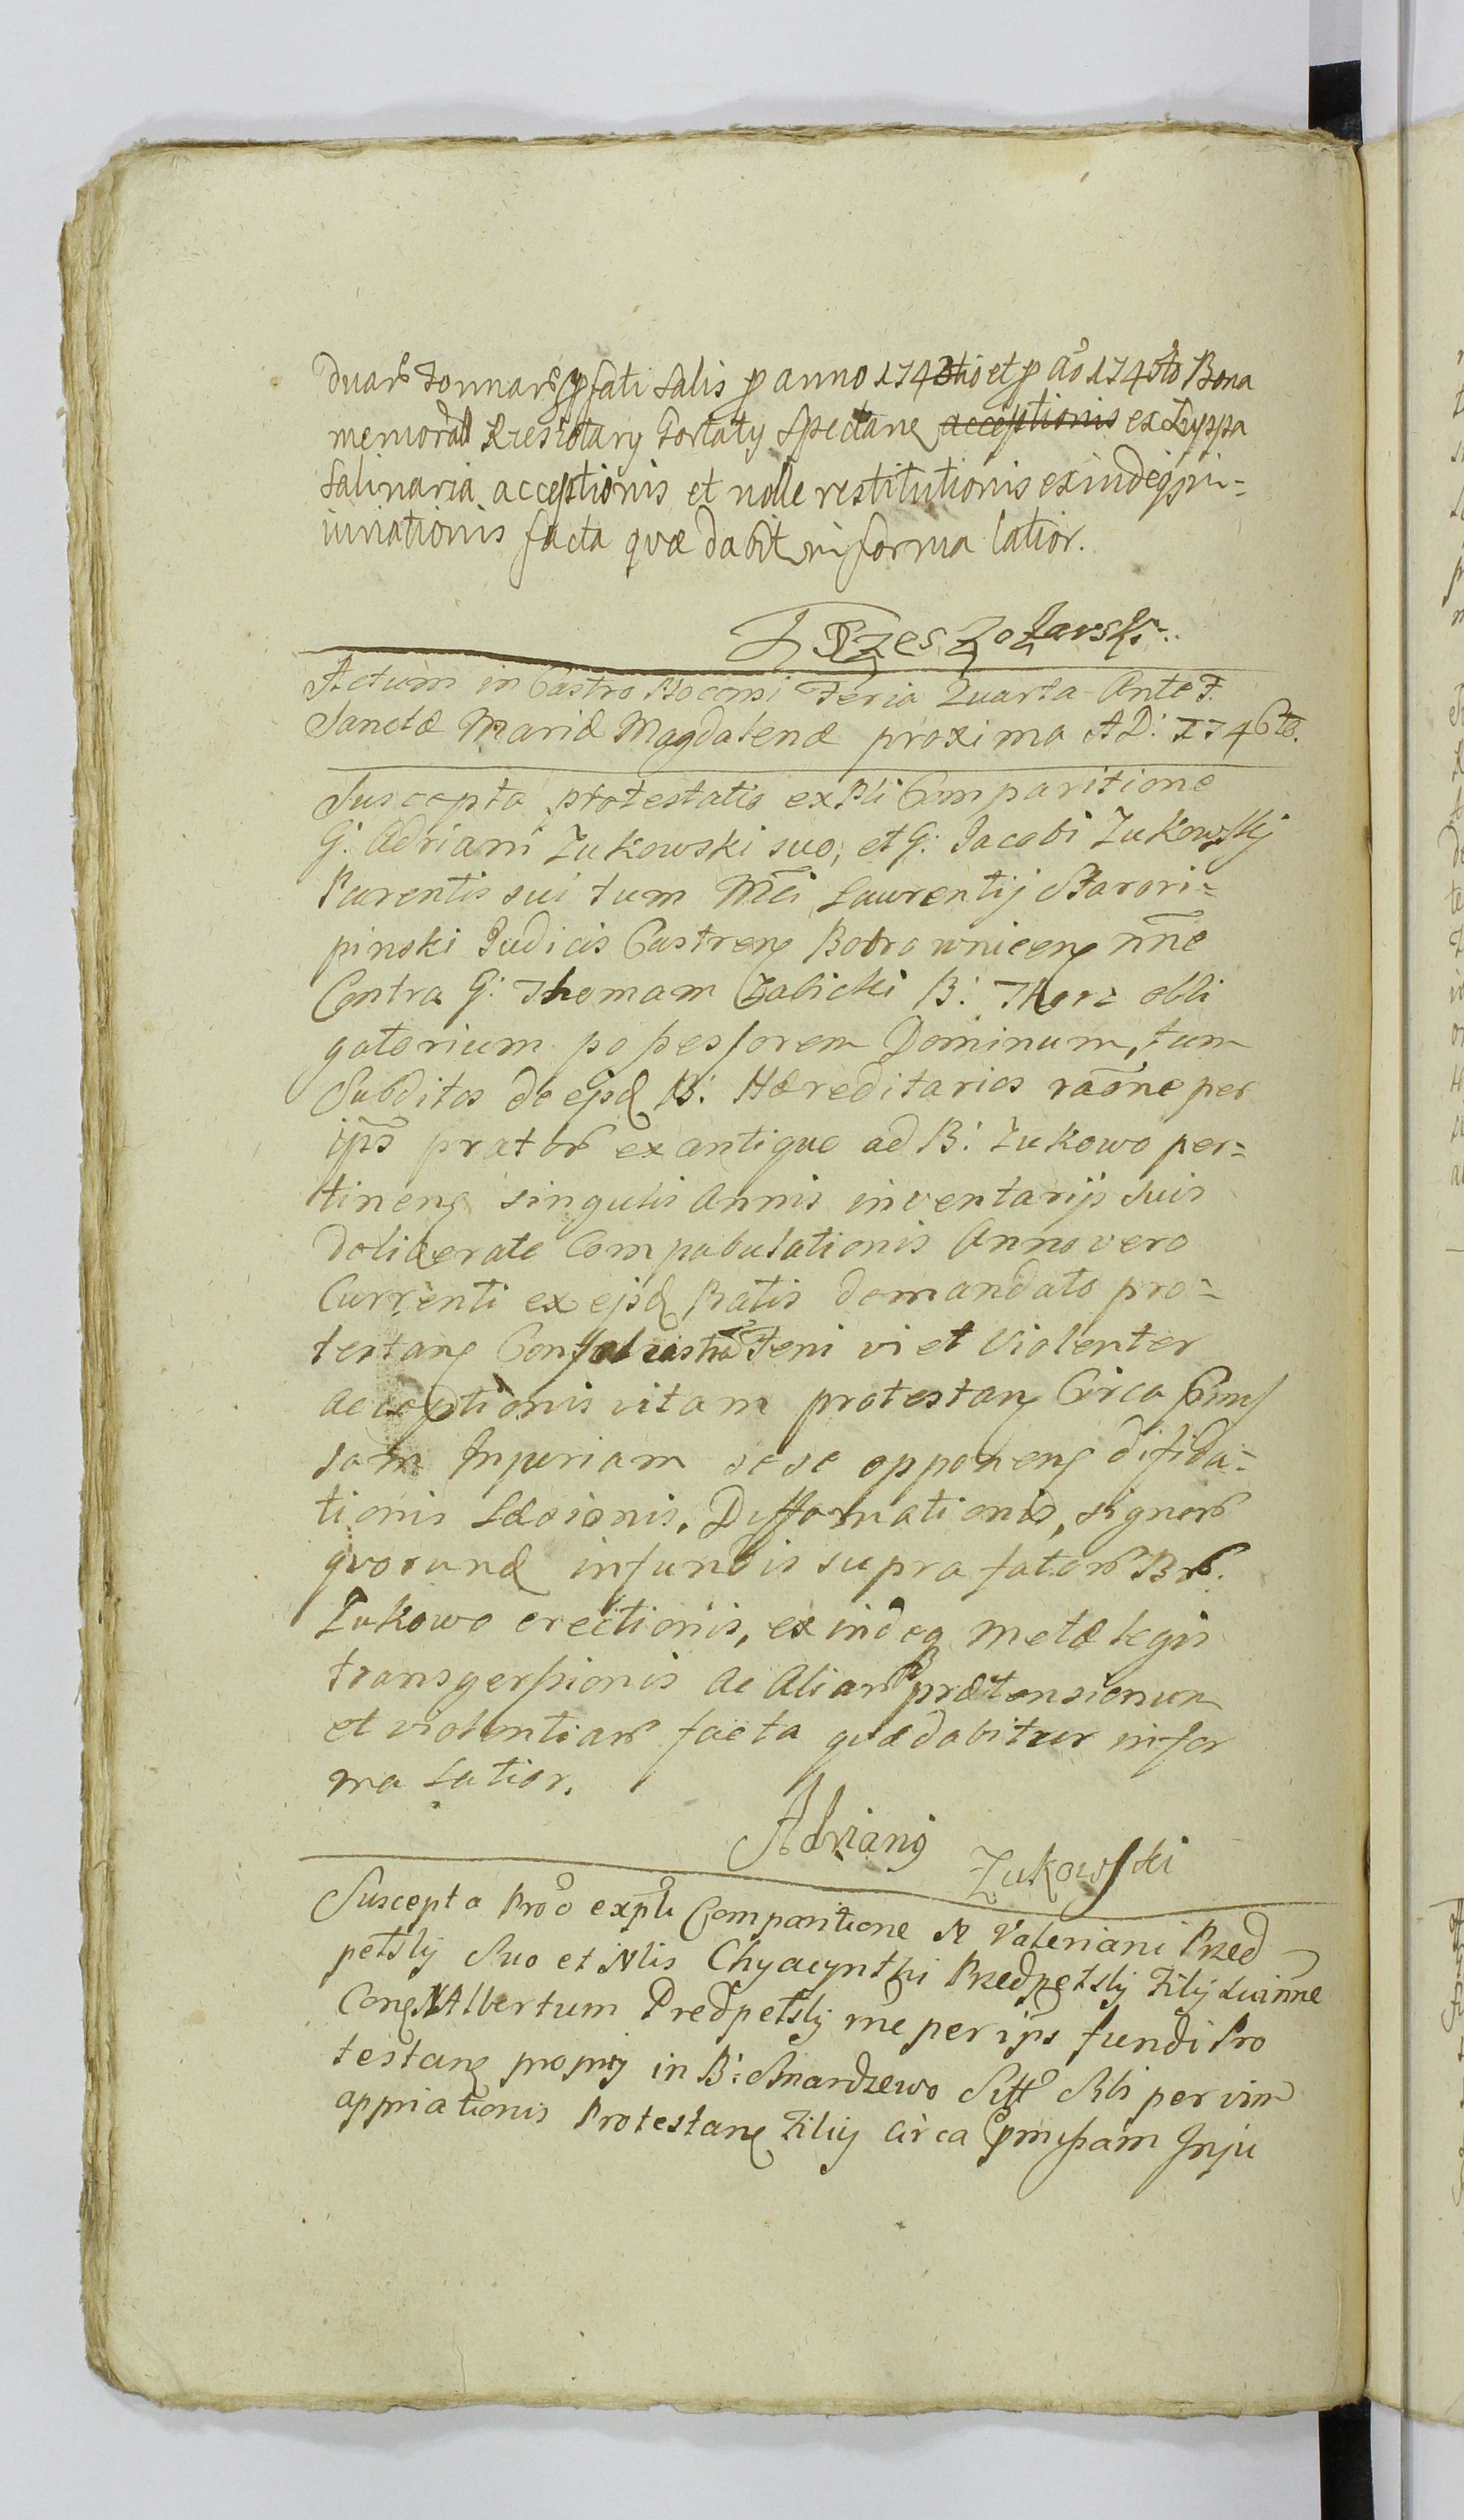 duar̃ Tonnar̃ p̱fati Salis p̱ anno 1743tio et p̱ aõ 1745to Bona
memorãll Rzeszotary Gortaty Spectanꝫ acceptionis ex Zuppa
Salinaria acceptionis et nolle restitutionis exindeqꝫ in=
iuriationis facta quæ dabit͞ in forma latior.
Rzeszotarski
Actum in Castro Bocensi Feria Quarta Ante F.
Sanctæ Mariæ Magdalenæ proxima AD: 1746to.
Suscepta protestatio ex pl̃i Comparitione
G. Adriani Zukowski suo, et G. Jacobi Zukowskij
Parentis sui tum Mc̃i Laurentij Starori=
pinski Judicis Castrenꝫ Bobrownicenꝫ nñe
Contra G. Thomam Zabicki B: Thor= obli
gatorium possessorem Dominum, tum
Subditos de ejsd B: Hæreditarios raõne per
ip̃s prator̃ ex antiquo ad B: Zukowo per=
tinenꝫ singulis Annis inventarijs suis
deliberate Compabulationis Anno vero
Currenti ex ejsd Pratis demandato pro=
testanꝫ Confalcastra Feni vi et Violenter
acceptionis vitam protestanꝫ Circa p̃mis
sam Injuriam sese opponenꝫ difida=
tionis Læsionis, Diffamationis, signor̃
quorund infundis supra fator̃ Br̃.
Zukowo erectionis, exindeq metæ legis
transgerssionis ac Aliar̃ prætensionum
et violentiar̃ facta quæ dabitur infor
ma Latior.
Adrianꝰ Zukowski
Suscepta Pro͠o expl̃i Comparitione N Valeriani Przed
petsky Suo et Nlis Chyacynthi Przedpetsky Filij sui nñe
Conꝫ N Albertum Predpetsky rñe per ip̃s fundi Pro
testanꝫ proprij in B: Smardzewo Sitt͞ Sibi per vim
appriationis Protestanꝫ Filij circa p̃missam Inju